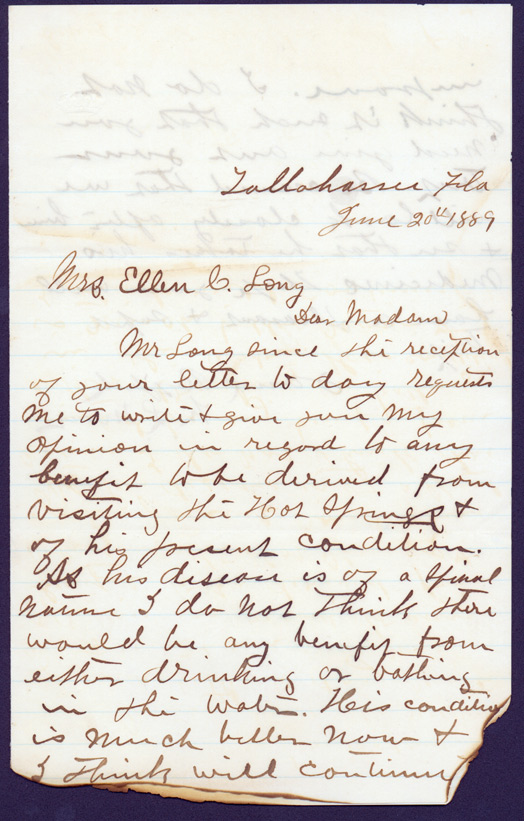 Tallahassee Fla
June 20th 1889
Mrs. Ellen C. Long
Dear Madam
Mr Long since the reception
of your letter to day requests
me to write & give you my
opinion in regard to any
benefit to be derived from
visiting the Hot Springs &
of his present condition.
As his disease is of a spinal
nature I do not think there
would be any benefit from
either drinking or bathing
in the water. His condition
is much better now &
I think will continue